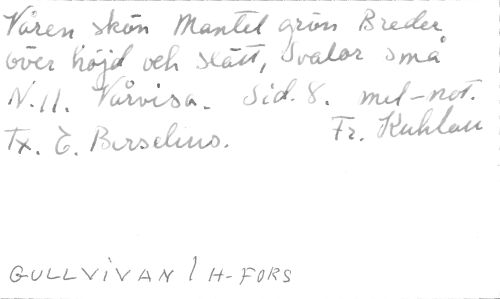 Våren skön Mantel grön Breder
över höjd och slätt, Svalor små
N.11. Vårvisa. Sid. 8. mel-not.
Tx. E. Berselius. Fr. Kuhlau
GULLVIVAN / H-FORS